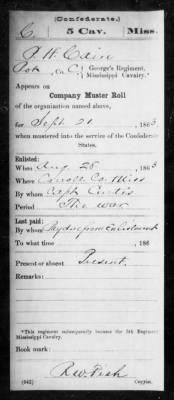 (Confederate.)
C. 5 Cav. Miss.
A. H. Cain
Co. C, George's Regiment,
Mississippi Cavalry.*
Appears on
Company Muster Roll
of the organization named above,
for Sept 21, 1863
when mustered into the service of the Confederate
States.
Enlisted:
When Aug 28, 1863
Where Carroll Co Miss
By whom Capt Curtis
Period The war
Last paid:
By whom Pay due from enlistment
To what time , 186
Present or absent Present
Remarks:
*This regiment subsequently became the 5th Regiment
Mississippi Cavalry.
Book mark:
(642) Copyist.